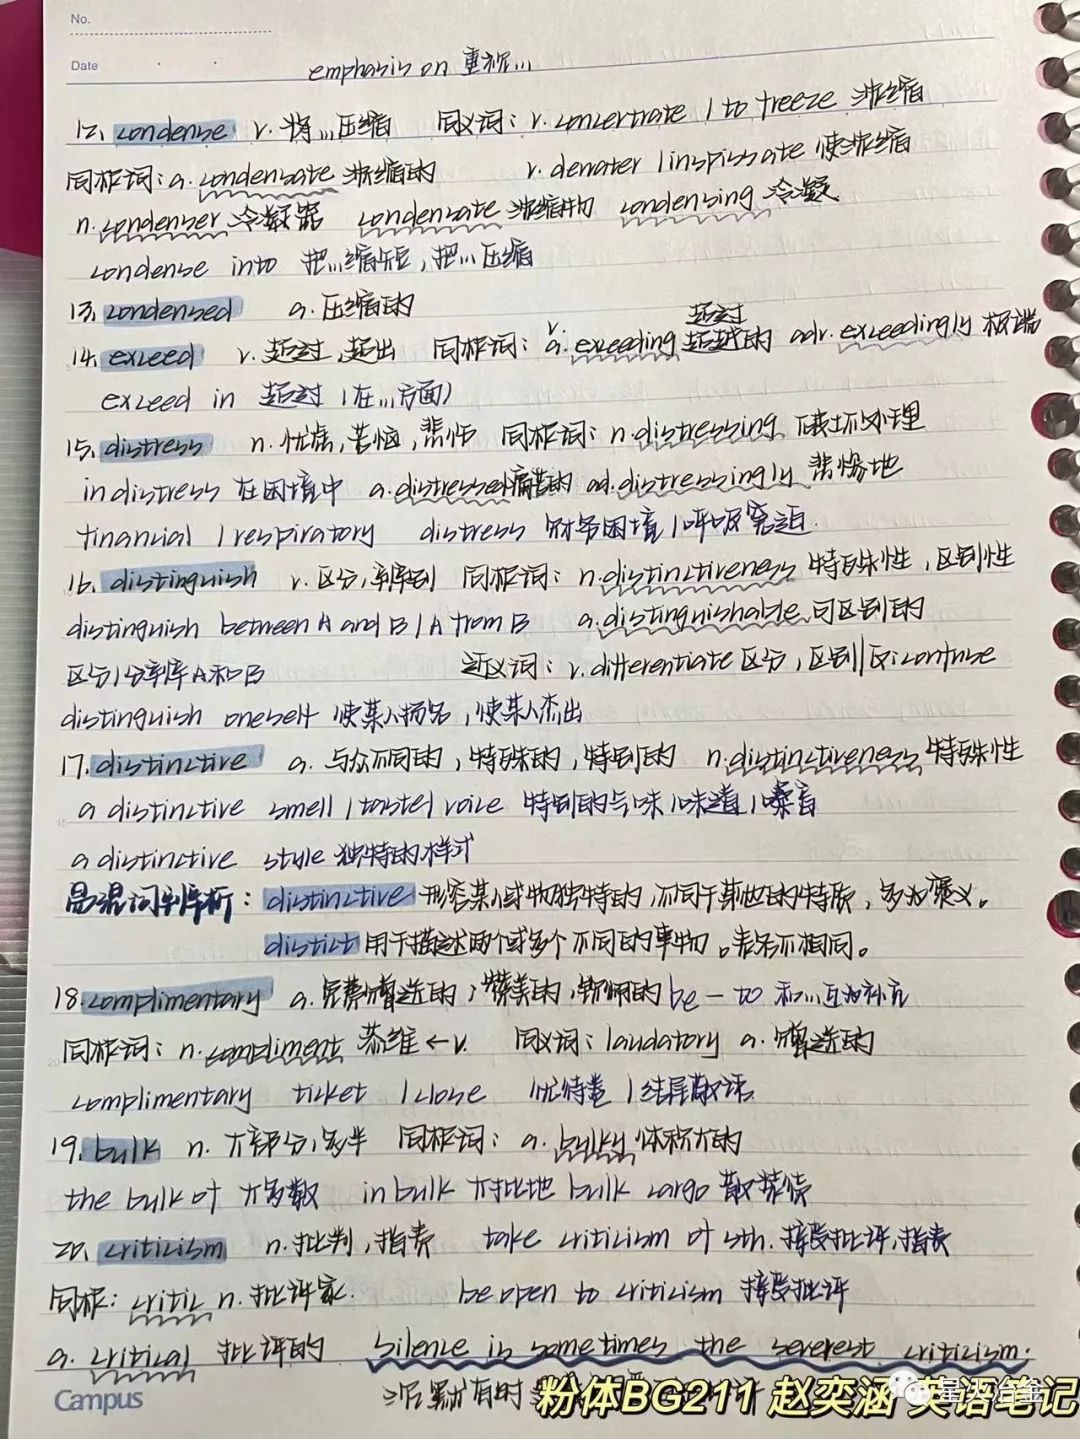 No.
Date
emphasis on 重视...
12. condense v. 将...压缩 同义词: v. concertrate / to freeze 浓缩
同根词: a. condensate 浓缩的 v. demater / inspissate 使浓缩
n. condenser 冷凝器 condensate 浓缩物 condensing 冷凝
condense into 把...缩短, 把...压缩
13. condensed a. 压缩的
14. exceed v. 超过, 超出 同根词: v. 超过 a. exceeding 超越的 adv. exceedingly 极端
exceed in 超过 (在...方面)
15. distress n. 忧虑, 苦恼, 悲伤 同根词: n. distressing 破坏处理
in distress 在困境中 a. distressed 痛苦的 ad. distressingly 悲惨地
financial / respiratory distress 财务困境 / 呼吸窘迫.
16. distinguish v. 区分, 辨别 同根词: n. distinctiveness 特殊性, 区别性
distinguish between A and B / A from B a. distinguishable 可区别的
区分/分辨A和B 近义词: v. differentiate 区分, 区别 || 反: confuse
distinguish oneself 使某人扬名, 使某人杰出
17. distinctive a. 与众不同的, 特殊的, 特别的 n. distinctiveness 特殊性
a distinctive smell / taste / voice 特别的气味 / 味道 / 嗓音
a distinctive style 独特的样式
易混词辨析: distinctive 形容某人或物独特的, 不同于其他的特质, 多为褒义。
distict 用于描述两个或多个不同的事物。表示不相同。
18. complimentary a. 免费赠送的, 赞美的, 钦佩的 be — to 和...互为补充
同根词: n. compliment 恭维 ← v. 同义词: laudatory a. 赠送的
complimentary ticket / close 优待卷 / 结尾敬语
19. bulk n. 大部分, 多半 同根词: a. bulky 体积大的
the bulk of 大多数 in bulk 大批地 bulk cargo 散装货
20. criticism n. 批判, 指责 take criticism of sth. 接受批评, 指责
同根: critic n. 批评家. be open to criticism 接受批评
a. critical 批评的 Silence is sometimes the severest criticism.
沉默有时
Campus
粉体BG211 赵奕涵 英语笔记
星火冶金